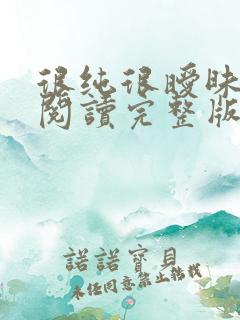 很纯很曖昧
閱讀完整版
諾諾寶貝
未经同意禁止轉載